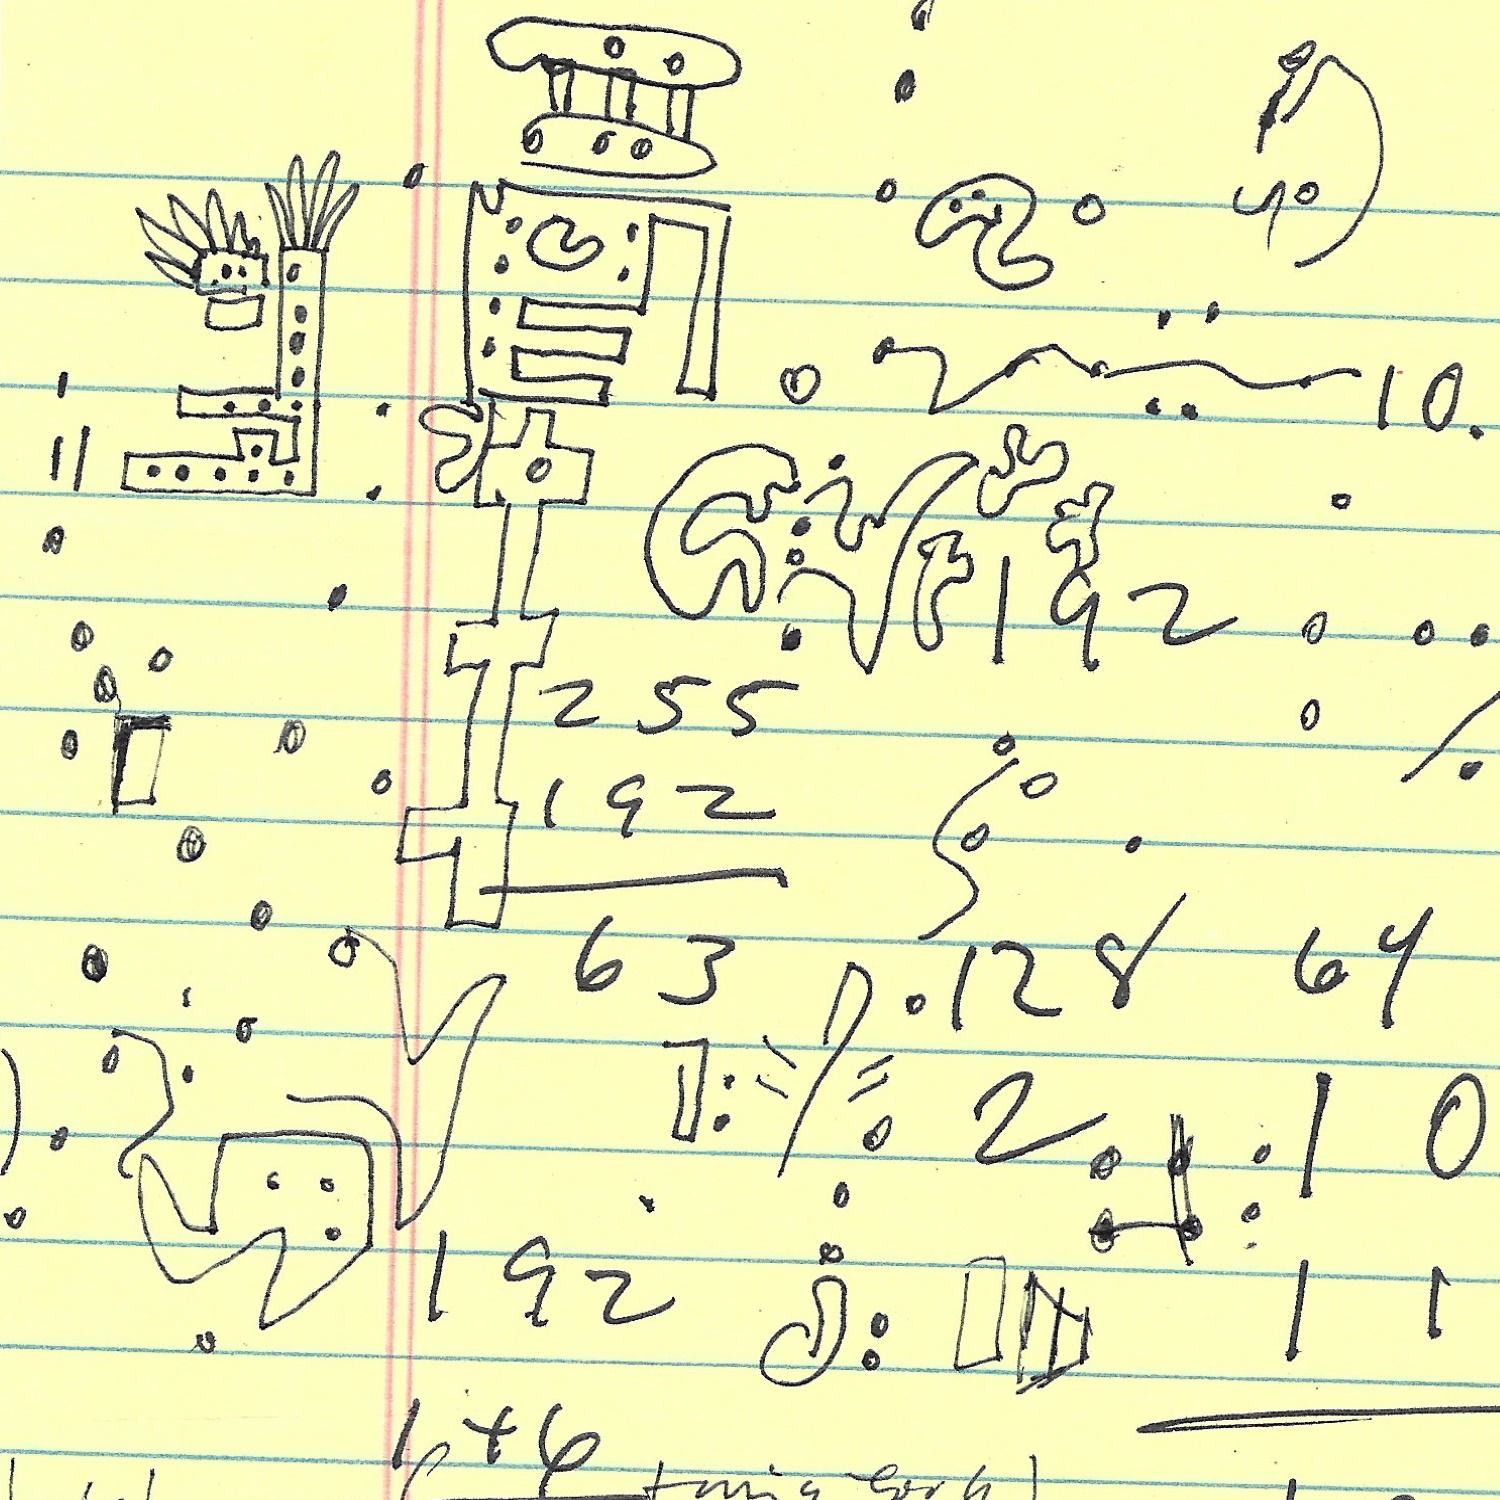 10.
192
255
192
63
.128 64
2 10
192
1 1
1+6